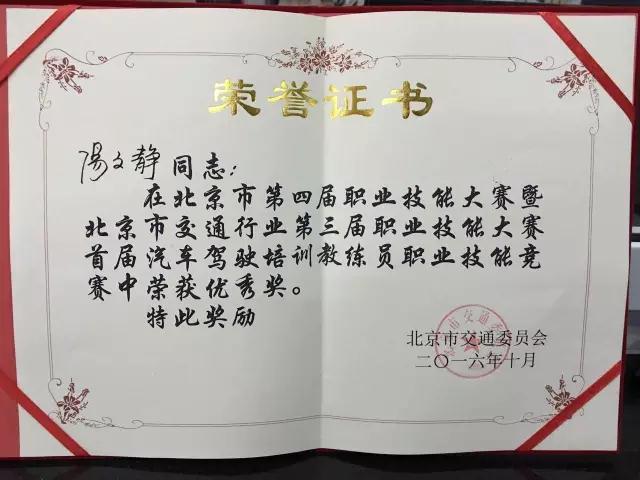 荣誉证书
陽文静同志：
在北京市第四届职业技能大赛暨
北京市交通行业第三届职业技能大赛
首届汽车驾驶培训教练员职业技能竞
赛中荣获优秀奖。
特此奖励
北京市交通委员会
二〇一六年十月